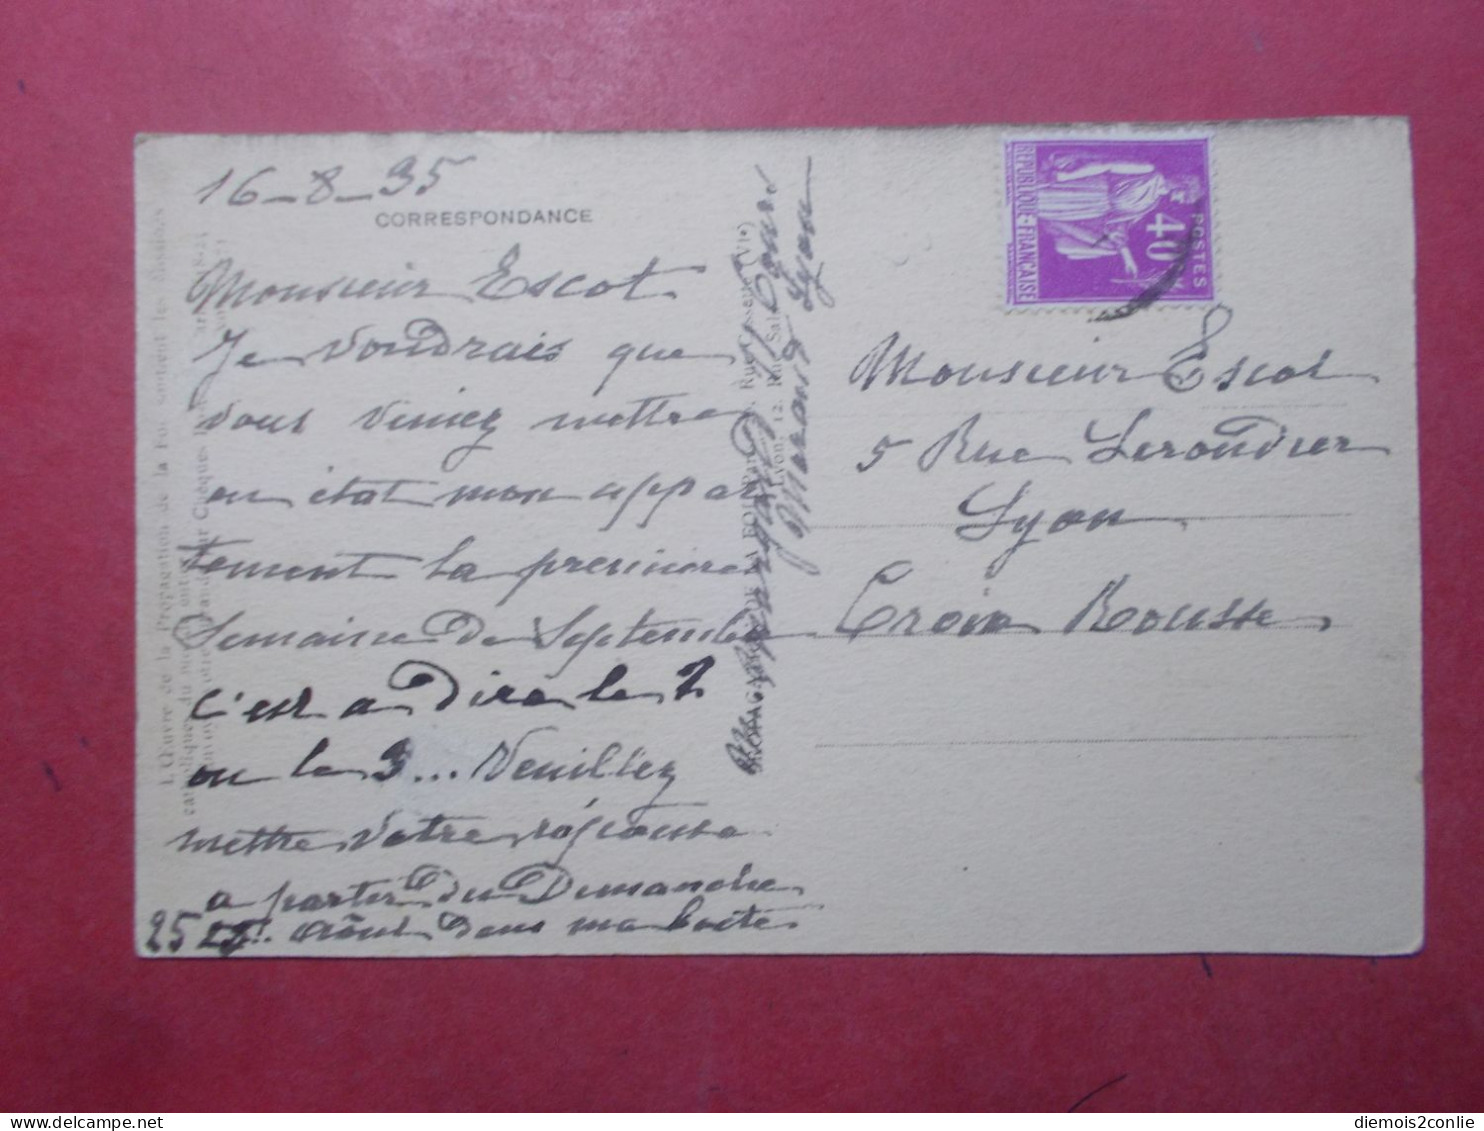 16-8-35
CORRESPONDANCE
Monsieur Escot
Je voudrais que
vous veniez mettre
en état mon appar
tement la premiere
Semaine de Septembre
c'est a dire le 2
ou le 3... Veuillez
mettre votre réponse
a partir du Dimanche
25 Août dans ma boite
Cours
Morand Lyon
L'Œuvre de la Propagation de la Foi soutient les Missions
catholiques du monde
RÉPUBLIQUE-FRANÇAISE
40
POSTES
Monsieur Escot
5 Rue Lerondier
Lyon
Croix Rousse
diemois2conlie